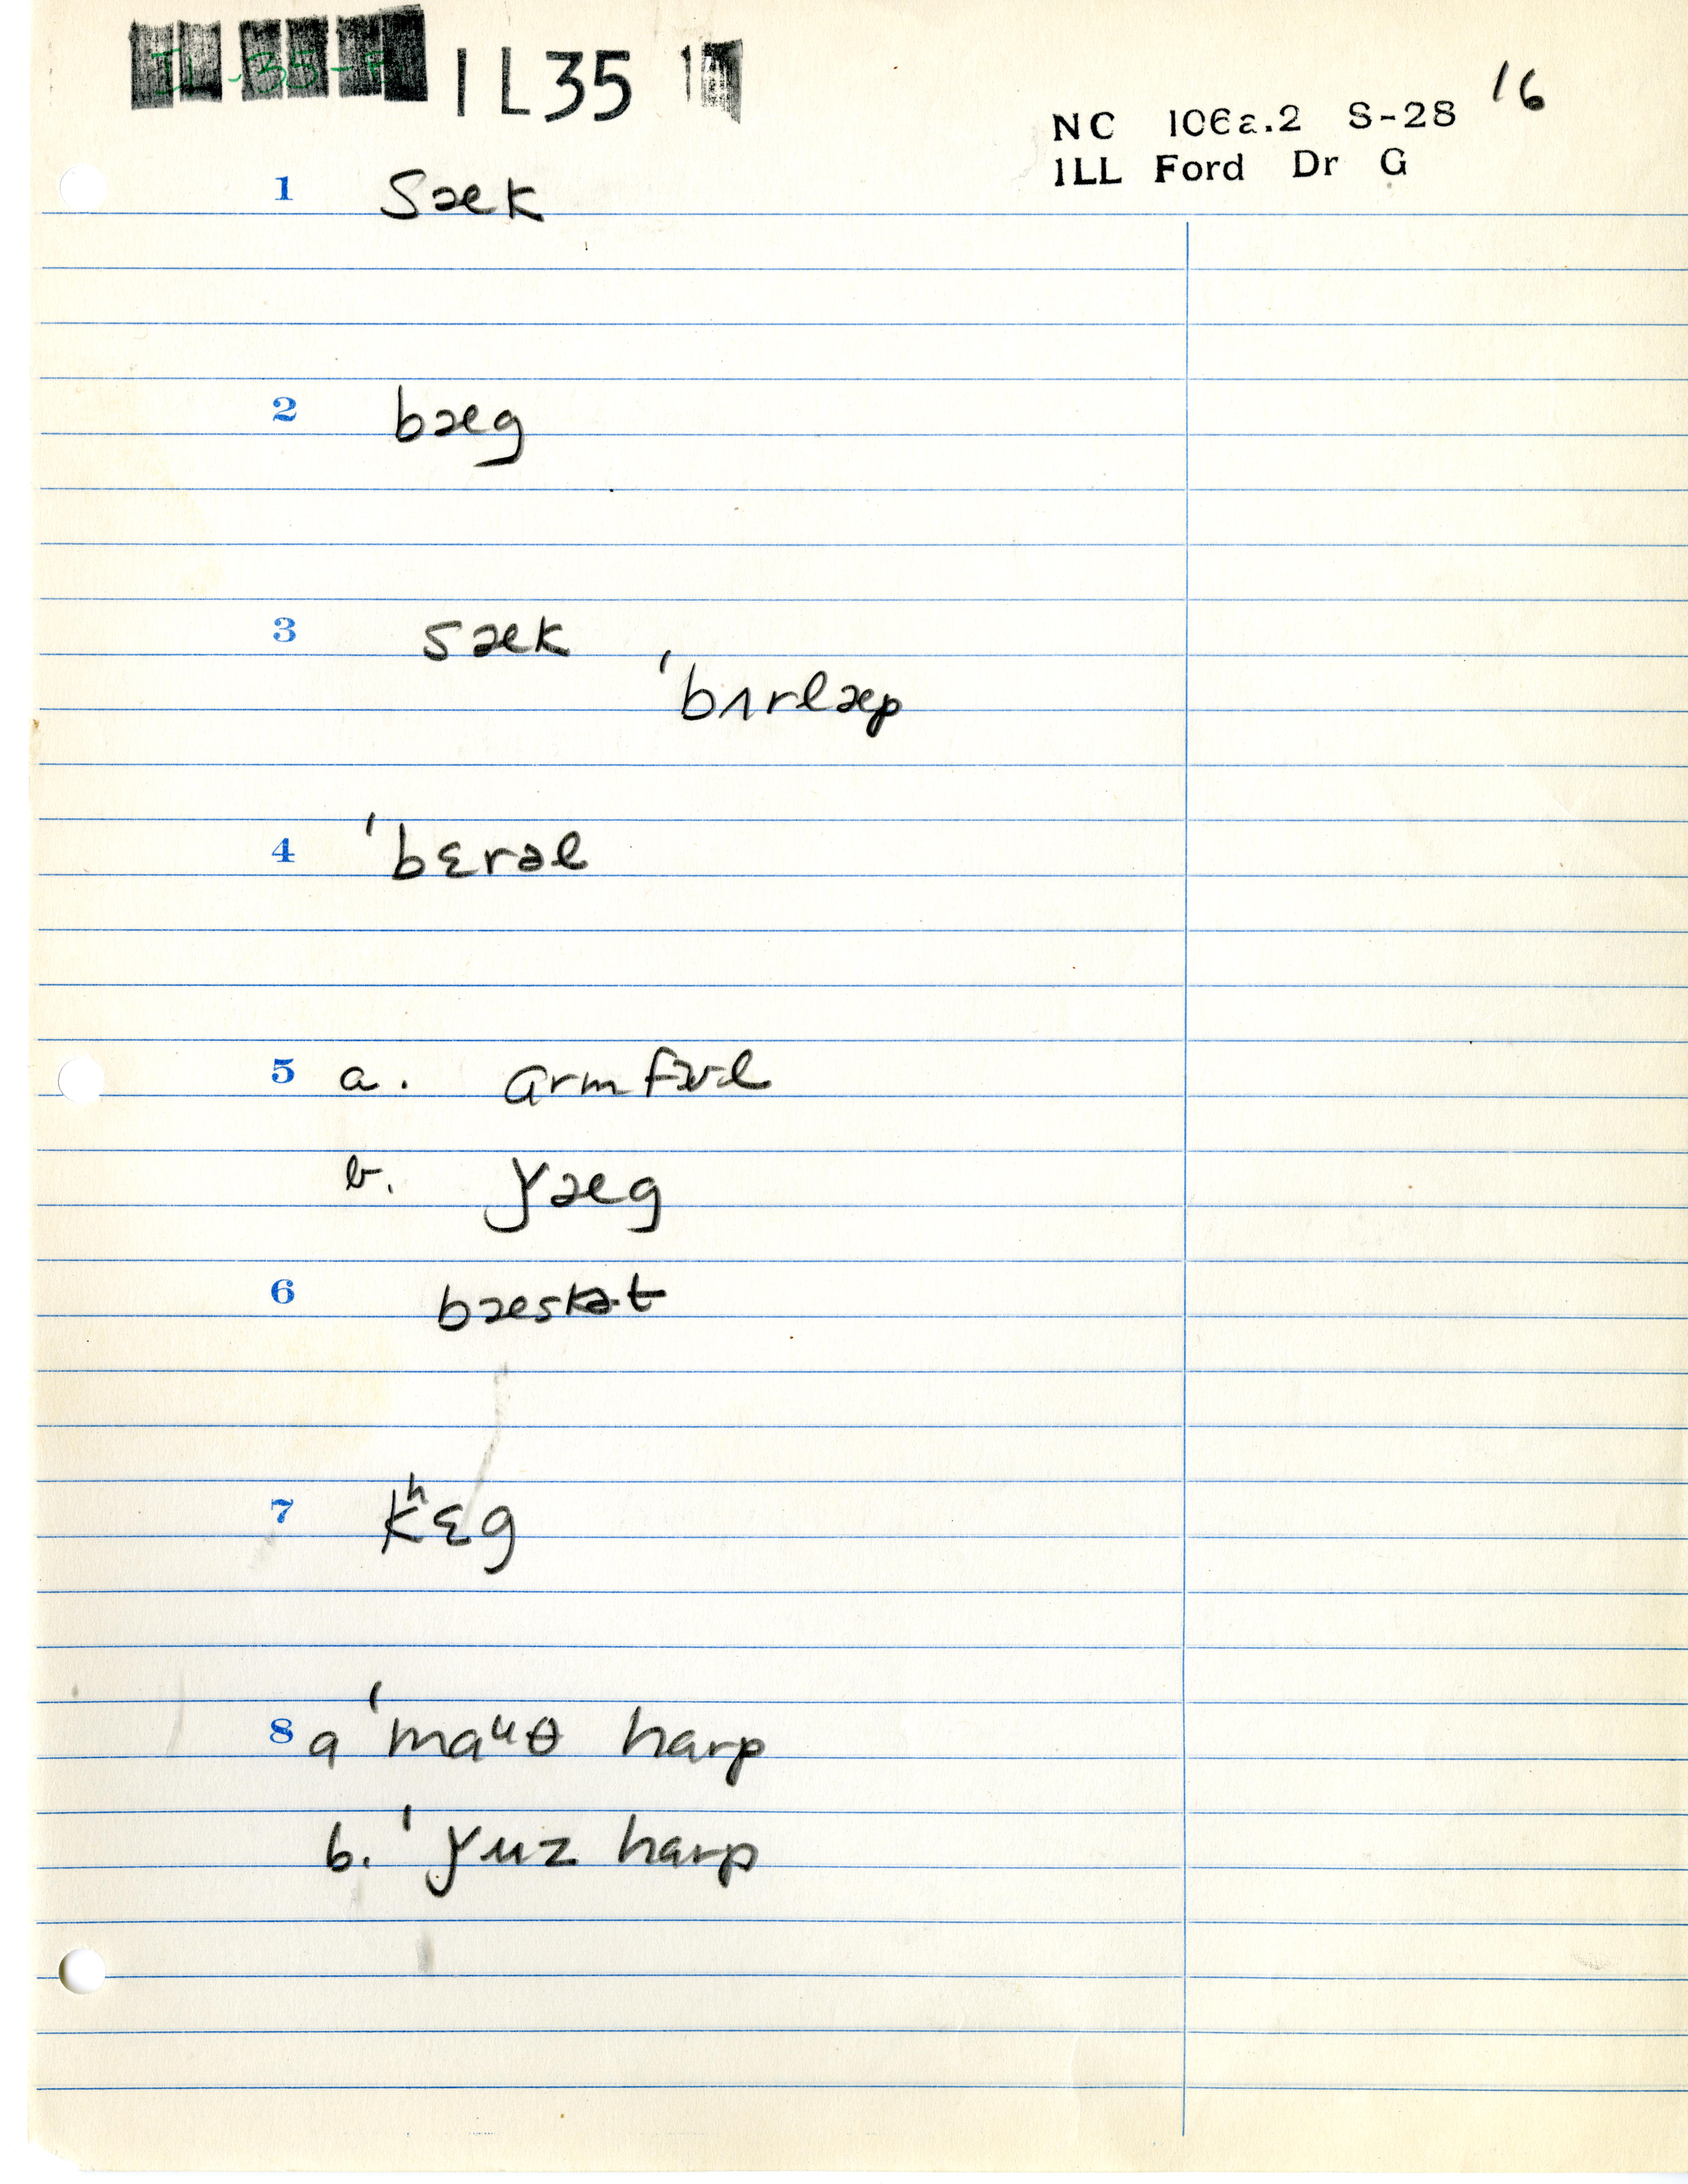 IL35
16
NC 106a.2 S-28
ILL Ford Dr G
1 sæk
2 bæg
3 sæk
ˈbɜrlæp
4 ˈbɛrəl
5 a. ɑrm fʊl
b. ǰæg
6 bæskət
7 kʰɛg
8 a ˈmaᵘθ harp
b. ˈǰuz harp